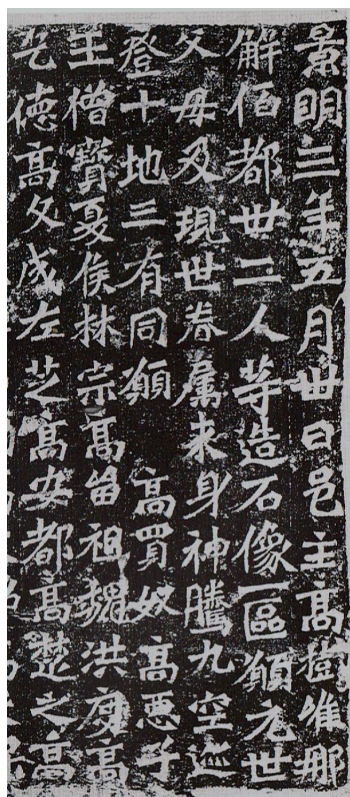 景明三年五月卅日邑主高樹唯那
解佰都卅二人等造石像一區願元世
父母及現世眷属来身神騰九空迹
登十地三有同願 高買奴高惡子
王僧寶夏侯林宗高留祖魏洪度高
乞德高文成左芝高安都高楚之高